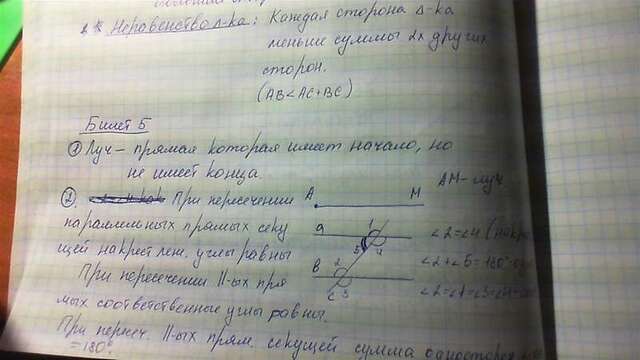 ** Неравенство Δ-ка: Каждая сторона Δ-ка
меньше суммы 2х других
сторон.
(AB<AC+BC)
Билет 5
① Луч – прямая которая имеет начало, но
не имеет конца.
AM – луч
② При пересечении
A M
параллельных прямых секу
щей накрест леж. углы равны
a 1 5 4
∠2=∠4 (накр
При пересечении ||-ых пря
B 2
∠2+∠5=180°
мых соответственные углы равны.
C 3
∠2=∠1=∠3=∠4
При пересч. ||-ых прям. секущей сумма односторон
=180°.